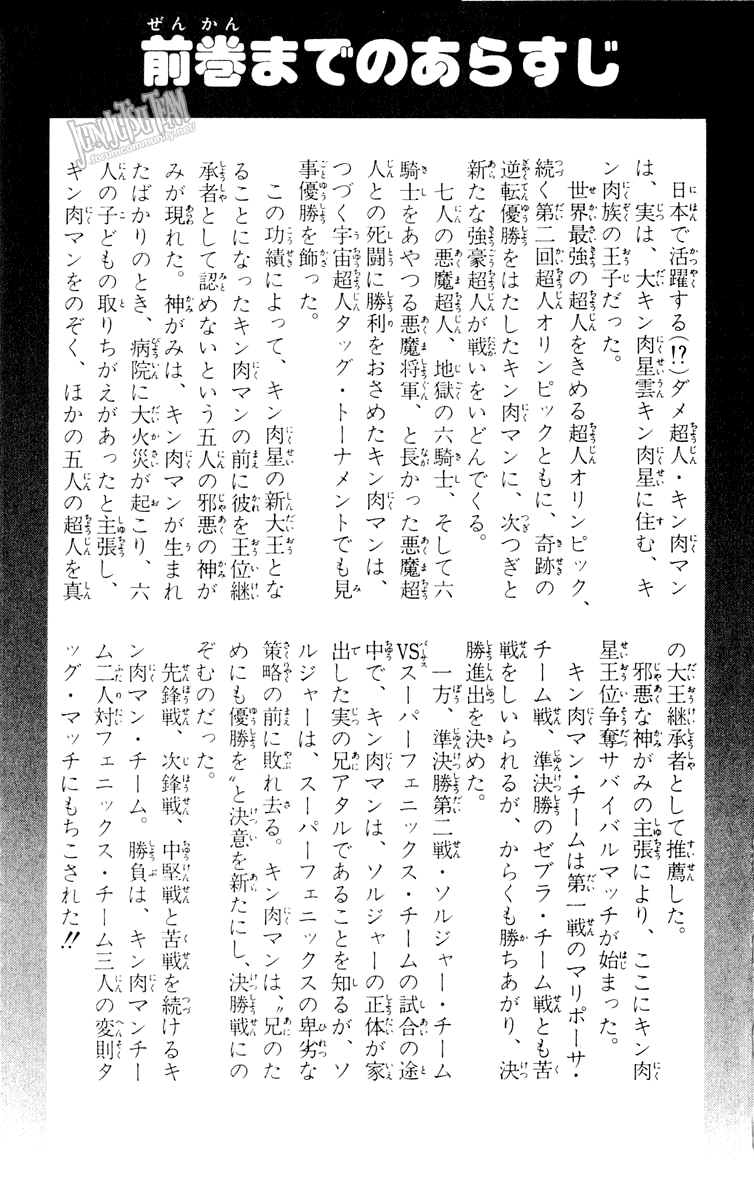 前巻までのあらすじ
日本で活躍する(!?)ダメ超人・キン肉マン
は、実は、大キン肉星雲キン肉星に住む、キ
ン肉族の王子だった。
世界最強の超人をきめる超人オリンピック、
続く第二回超人オリンピックともに、奇跡の
逆転優勝をはたしたキン肉マンに、次つぎと
新たな強豪超人が戦いをいどんでくる。
七人の悪魔超人、地獄の六騎士、そして六
騎士をあやつる悪魔将軍、と長かった悪魔超
人との死闘に勝利をおさめたキン肉マンは、
つづく宇宙超人タッグ・トーナメントでも見
事優勝を飾った。
この功績によって、キン肉星の新大王とな
ることになったキン肉マンの前に彼を王位継
承者として認めないという五人の邪悪の神が
みが現れた。神がみは、キン肉マンが生まれ
たばかりのとき、病院に大火災が起こり、六
人の子どもの取りちがえがあったと主張し、
キン肉マンをのぞく、ほかの五人の超人を真
の大王継承者として推薦した。
邪悪な神がみの主張により、ここにキン肉
星王位争奪サバイバルマッチが始まった。
キン肉マン・チームは第一戦のマリポーサ・
チーム戦、準決勝のゼブラ・チーム戦とも苦
戦をしいられるが、からくも勝ちあがり、決
勝進出を決めた。
一方、準決勝第二戦・ソルジャー・チーム
VSスーパーフェニックス・チームの試合の途
中で、キン肉マンは、ソルジャーの正体が家
出した実の兄アタルであることを知るが、ソ
ルジャーは、スーパーフェニックスの卑劣な
策略の前に敗れ去る。キン肉マンは、〝兄のた
めにも優勝を〟と決意を新たにし、決勝戦にの
ぞむのだった。
先鋒戦、次鋒戦、中堅戦と苦戦を続けるキ
ン肉マン・チーム。勝負は、キン肉マンチー
ム二人対フェニックス・チーム三人の変則タ
ッグ・マッチにもちこされた!!
JUMJUTSU TEAM
.forumcommunity.net/